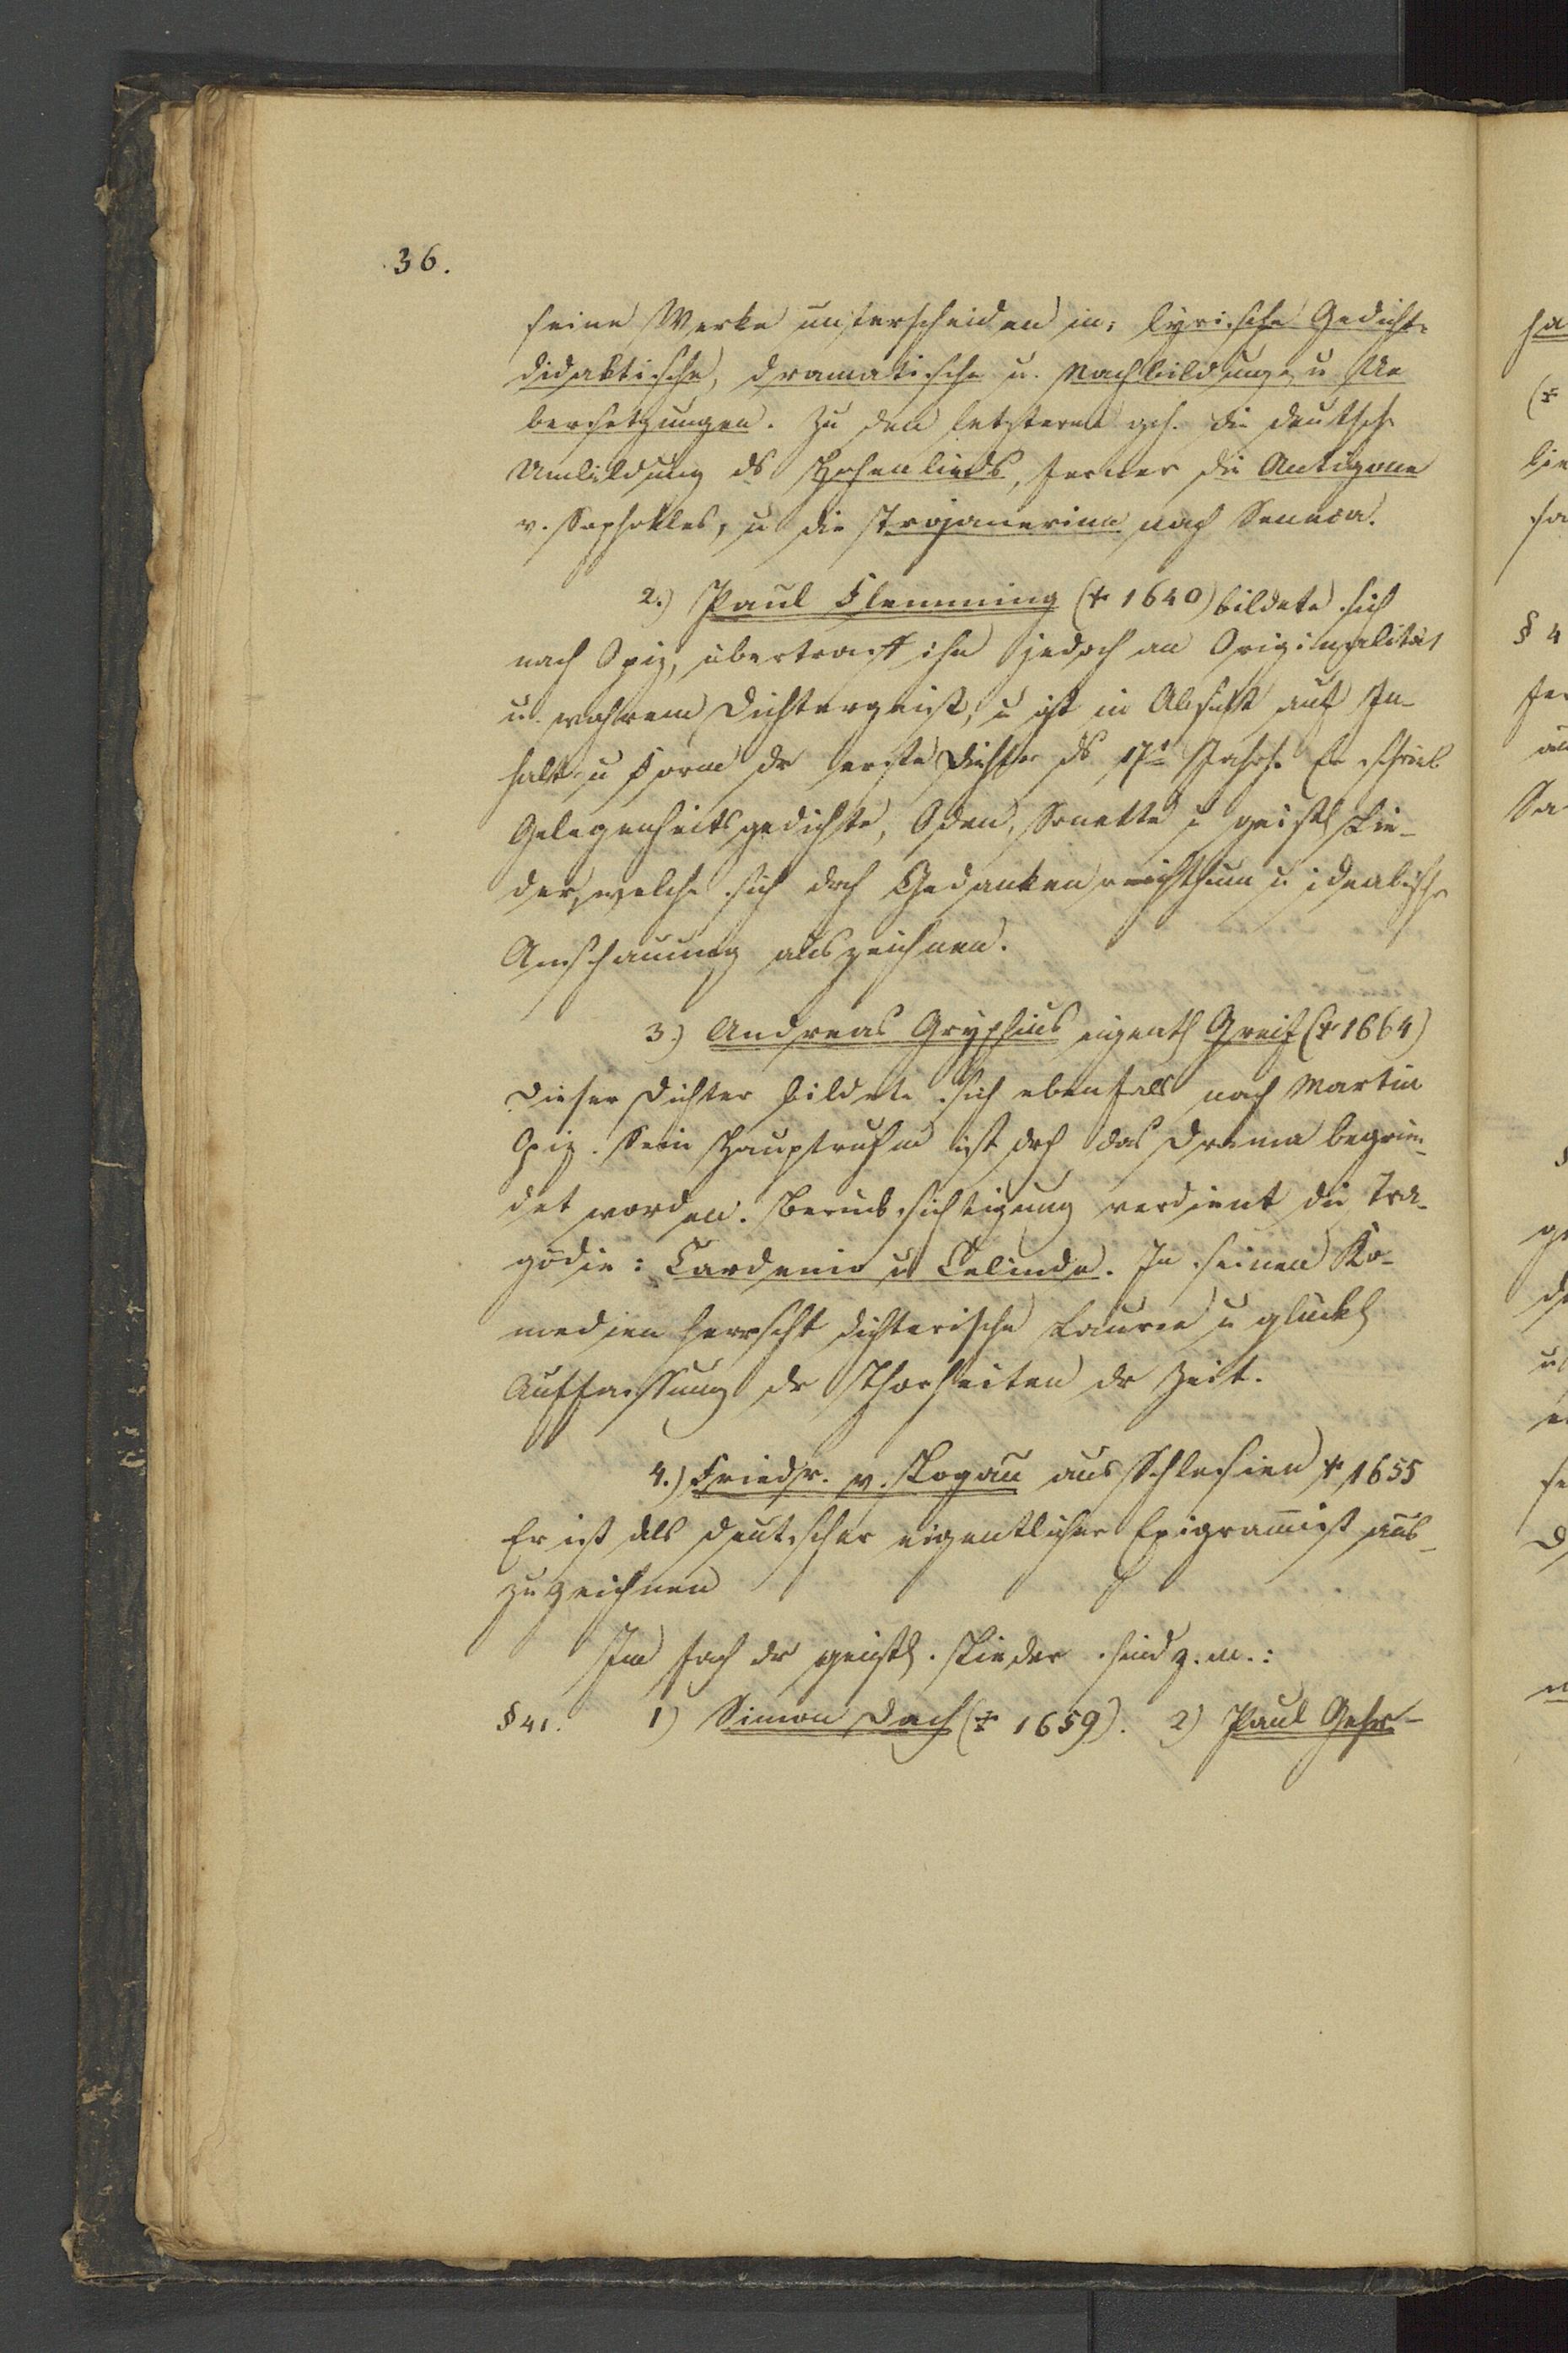 36.
seine Werke unterscheiden in: lyrische Gedichte
didaktische, dramatische u. Nachbildung, u Ue
bersetzungen. Zu den letztern geh. die deutsche
Umbildung ds Hohenlieds, ferner die Antigone
v. Sophokles, u die Trojanerinn nach Seneca.
2.) Paul Flemming († 1640) bildete sich
nach Opiz, übertraff ihn jedoch an Originalität
u. wahrem Dichtergeist, u ist in Absicht auf In-
halt u Form dr erste Dichter ds 17t Jahrh. Er schrieb
Gelegenheitsgedichte, Oden, Sonette u geistl Lie-
der, welche sich dch Gedankenreichthum u idealische
Anschauung auszeichnen.
3.) Andreas Gryphius eigentl Greif († 1664)
Dieser Dichter bildete sich ebenfalls nach Martin
Opiz. Sein Hauptruhm ist dch das Drama begrün-
det worden. Berücksichtigung verdient die Tra-
gödie: Cardenio u Celinde. In seinen Ko-
medien herrscht dichterische Laune u glückl
Auffassung dr Thorheiten dr Zeit.
4.) Friedr. v. Logau aus Schlesien † 1655
Er ist als deutscher eigentlicher Epigram̅ist aus-
zuzeichnen
Im Fach dr geistl. Lieder sind z. m.:
§ 41. 1) Simon Dach († 1659). 2) Paul Gehr-